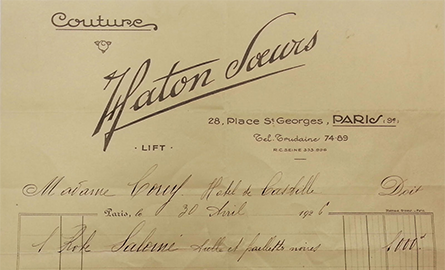 Couture
Haton Sœurs
28, Place St Georges, PARIS (9e)
Tel. Trudaine 74-89
- LIFT -
R.C. SEINE 353.806
Madame Hotel de Castille Doit
Paris, le 30 Avril 1926
1 Robe Salomé tulle et paillettes noires 1000